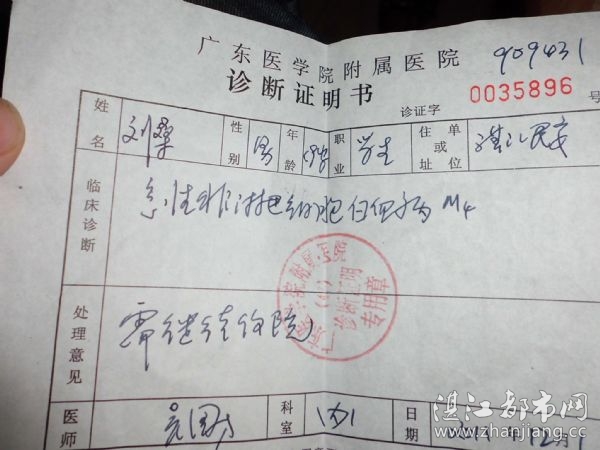 广东医学院附属医院 909431
诊断证明书
诊证字 0035896 号
姓名 刘燊 性别 男 年龄 19岁 职业 学生 单位或住址 湛江民安
临床诊断
急性非淋巴细胞白血病M4
处理意见
需继续住院
诊断证明
专用章
医师 科室 内 日期 12月1
湛江都市网
www.zhanjiang.cc